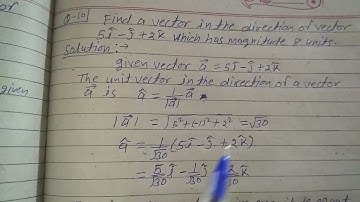 or
given
Q-10 Find a vector in the direction of vector
5î - ĵ + 2k̂ which has magnitude 8 units.
Solution:→
given vector a⃗ = 5î - ĵ + 2k̂
The unit vector in the direction of a vector
a⃗ is â = 1/|a⃗| a⃗
|a⃗| = √5²+(-1)²+2² = √30
â = 1/√30 (5î - ĵ + 2k̂)
= 5/√30 î - 1/√30 ĵ + 2/√30 k̂